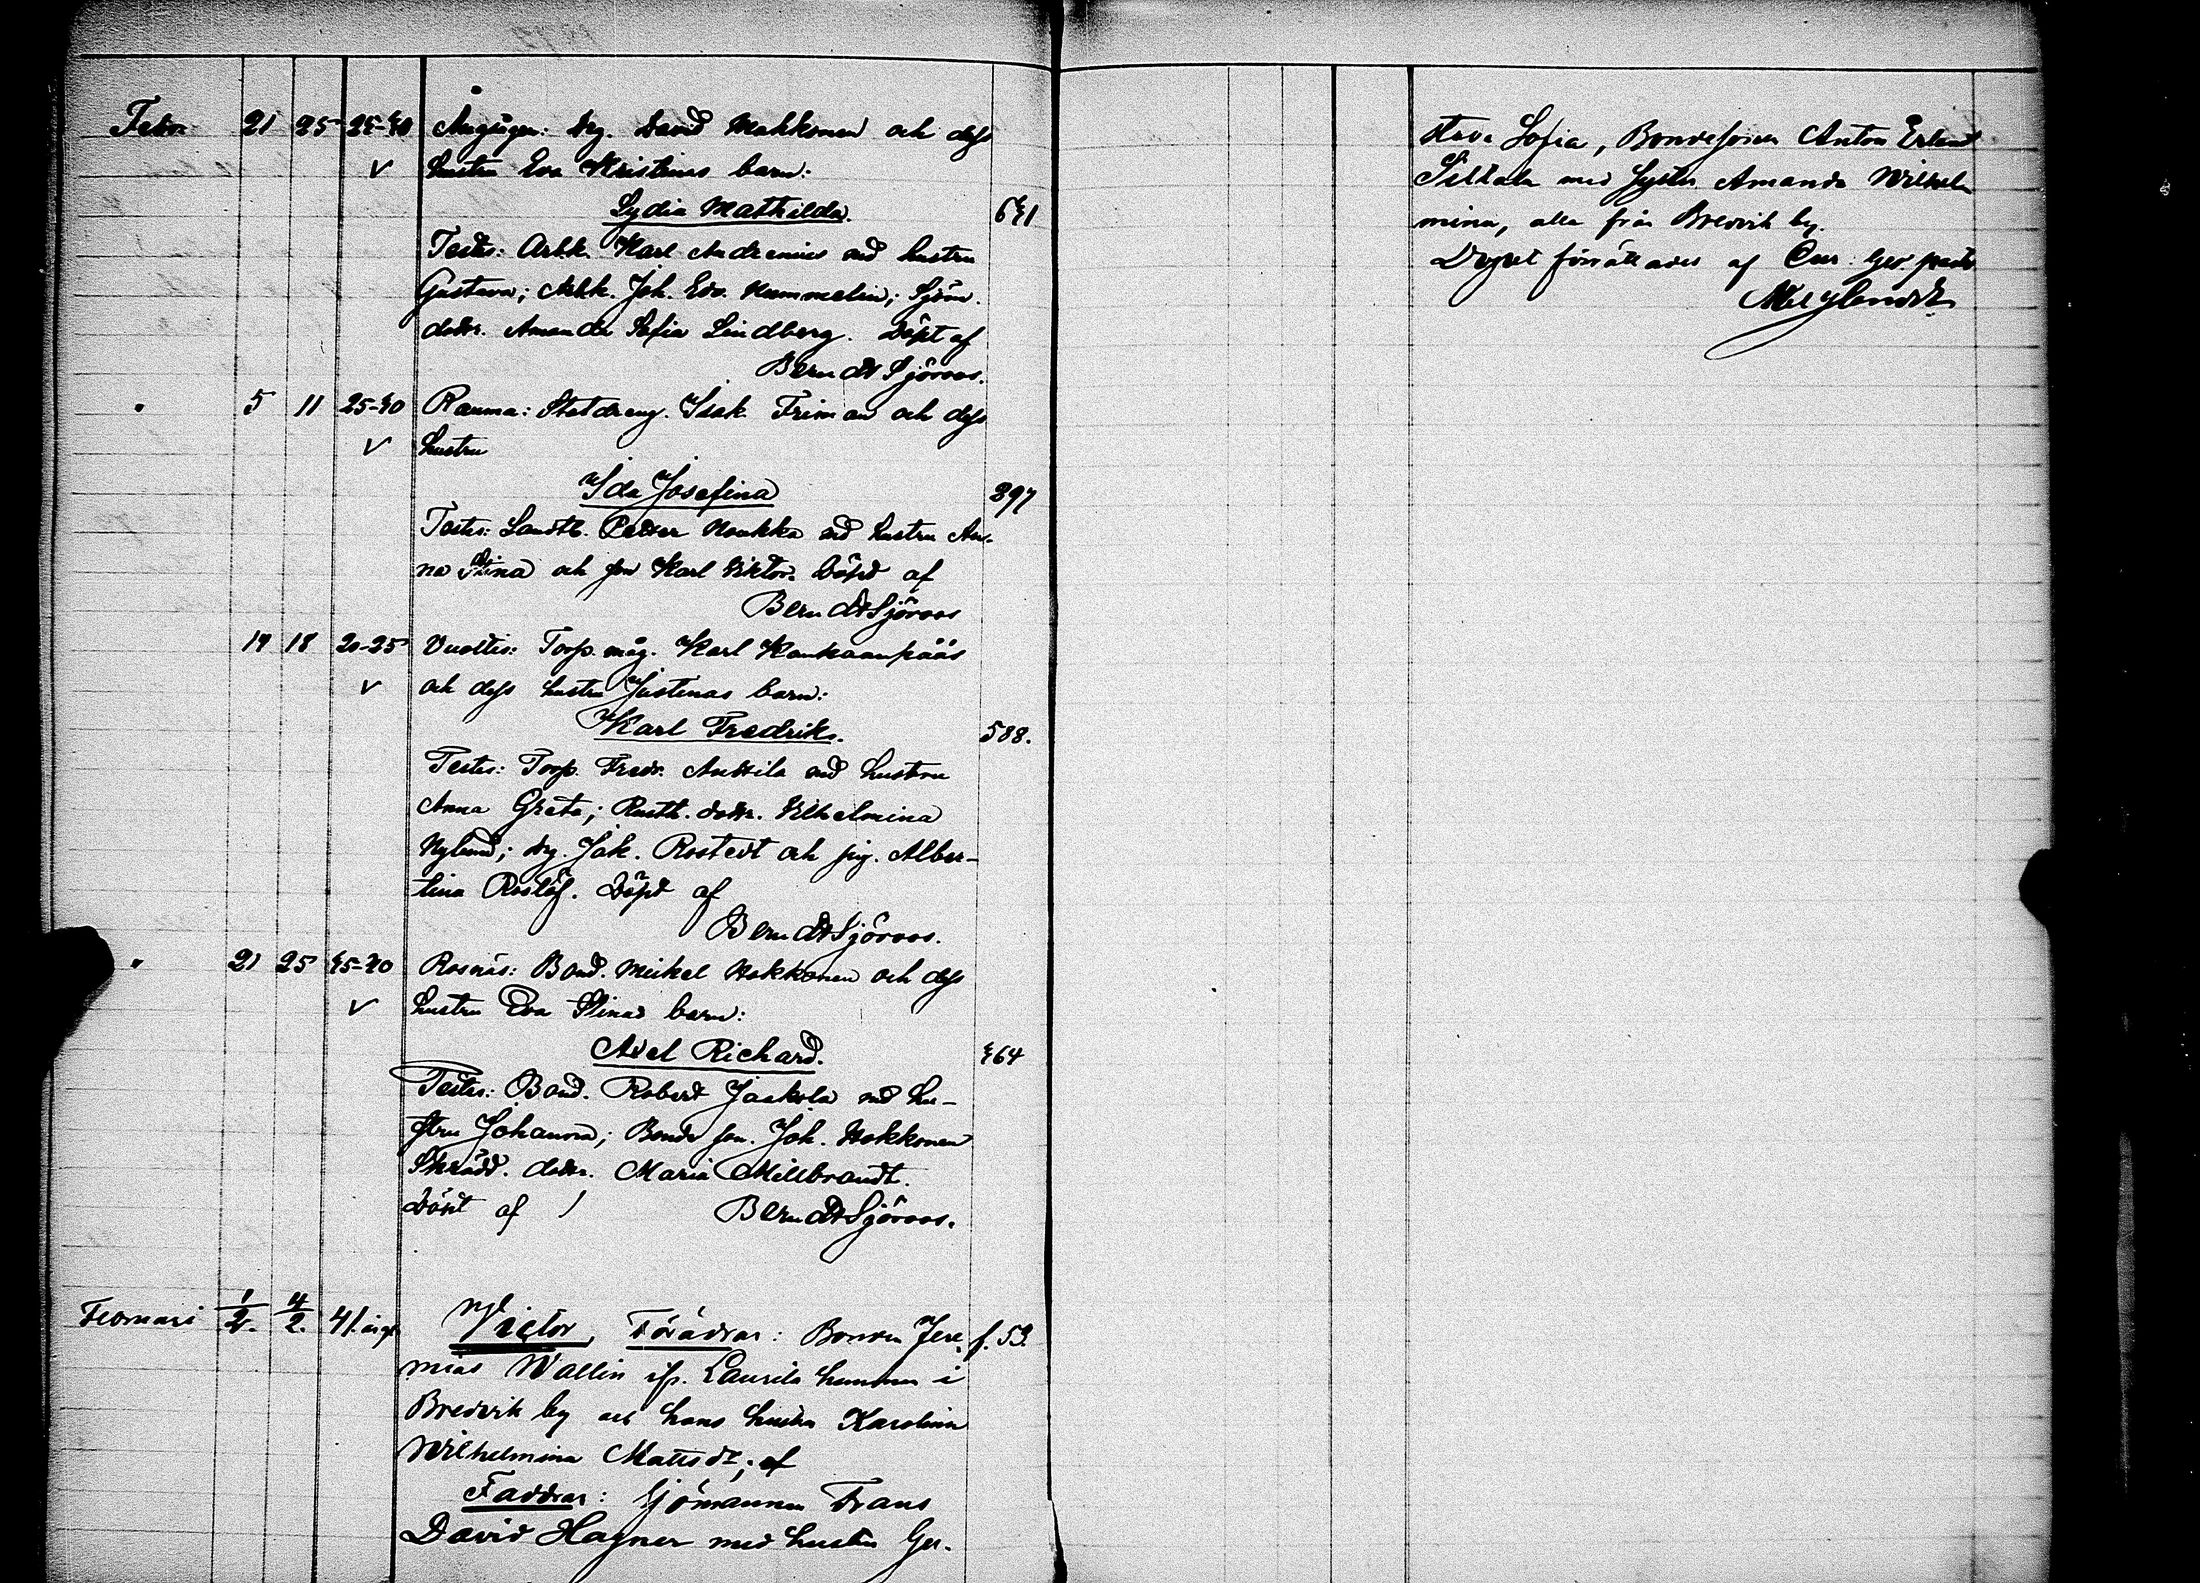 Febr. 21 25 25-40 Drg. David Makkonen och dess
v hustru Eva Kristinas barn:
Lydia Mathilda. 641
Testes: Arbk. Karl Andrenius md hustru
Gustava; Arbk. Joh. Edv. Hummelin; Sjöm.
dottr. Amanda Sofia Lindberg. Döpt af
Berndt Sjöroos.
" 5 11 25-40 Rauma: Statdreng. Isak Friman och dess
v hustru
Ida Josefina 397
Testes: Landtb. Petter Noukka md hustru An-
na Stina och son Karl Viktor. Döpt af
Berndt Sjöroos
14 18 20-25 Vuoltis: Torp. måg. Karl Kankaanpääs
v och dess hustru Justinas barn:
Karl Fredrik. 588.
Testes: Torp. Fredr. Anttila md hustru
Anna Greta; Rusth. dottr. Vilhelmina
Nylund; drg. Jak. Rostedt och pig. Alber-
tina Roslöf. Döpt af
Berndt Sjöroos.
" 21 25 35-40 Rosnäs: Bond. Mickel Hokkonen och dess
v hustru Eva Stinas barn:
Axel Richard. 464
Testes: Bond. Robert Jaakola md hu-
stru Johanna; Bonde son. Joh. Hokkonen
Skrädd. dottr. Maria Hillbrandt.
Döpt af Berndt Sjöroos.
Februari 1/2. 4/2. 41. Victor, Föräldrar: Bonden Jere- f. 53.
mias Wallin Laurila hemman i
Bredvik by och hans hustru Karolina
Wilhelmina Mattsdr;
Faddrar: Sjömannen Frans
David Hagner med hustru Gu-
stava Sofia, Bondesonen Anton Erland
Siltala med syster Amanda Wilhel
mina, alla från Bredvik by.
Dopet förrättades af